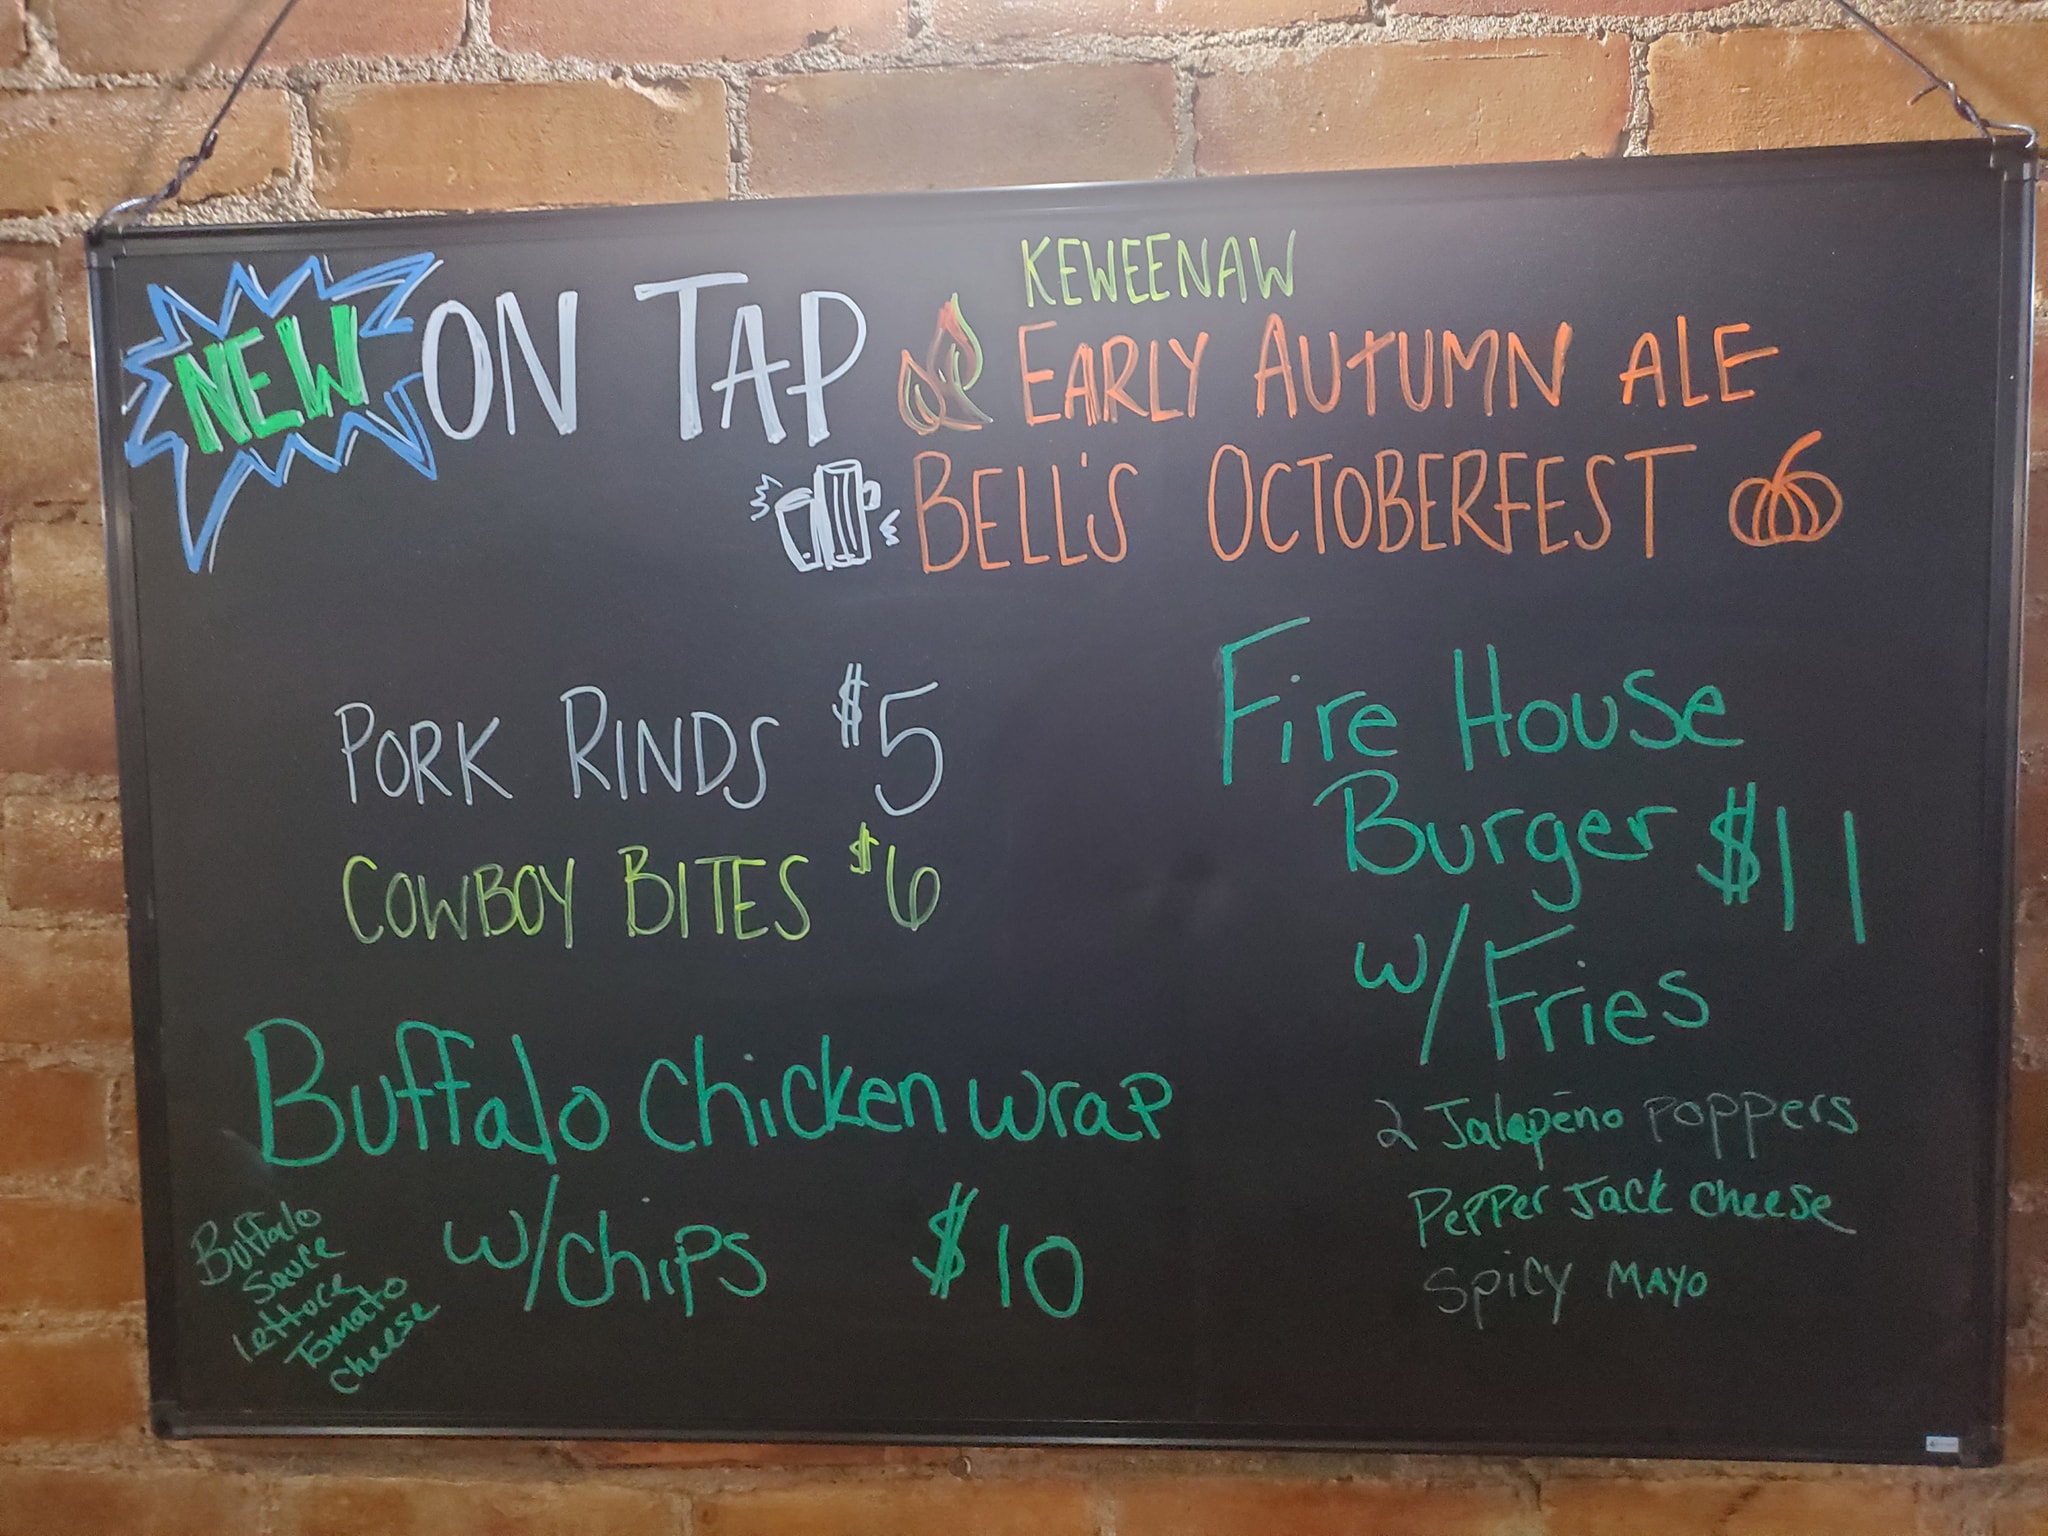 NEW ON TAP
KEWEENAW
EARLY AUTUMN ALE
BELL'S OCTOBERFEST
PORK RINDS $5
COWBOY BITES $6
Buffalo chicken wrap
w/chips $10
Buffalo
Sauce
Lettuce
Tomato
cheese
Fire House
Burger $11
w/Fries
2 Jalapēno poppers
Pepper Jack cheese
Spicy MAYO